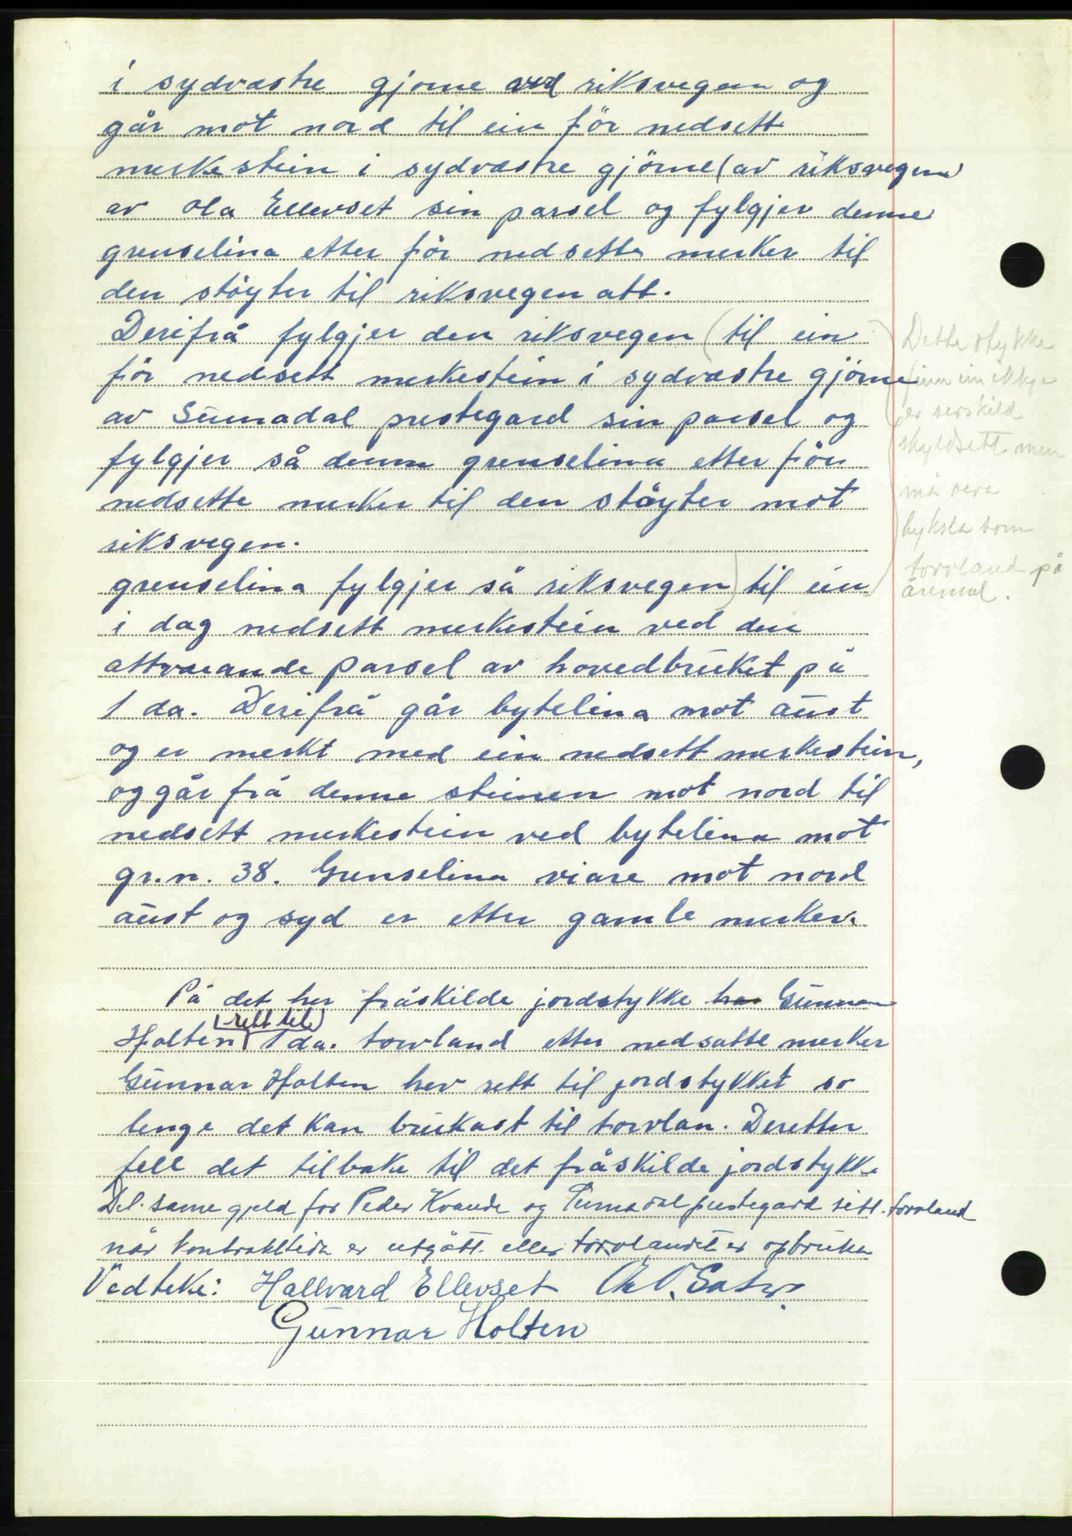 i sydvæstre gjørne ved riksvegen og
går mot nord til ein för nedsett
merkestein i sydvæstre gjörne (av riksvegen
av Ola Ellevset sin parsel og fylgjer denne
grenselina etter för nedsette merker til
den stöyter til riksvegen att.
Derifrå fylgjer den riksvegen (til ein
för nedsett merkestein i sydvæstre gjörne
av Surnadal prestegard sin parsel og
fylgjer så denne grenselina etter för
nedsette merker til den stöyter mot
riksvegen.
grenselina fylgjer så riksvegen) til ein
i dag nedsett merkestein ved den
attverande parsel av hovedbruket på
1 da. Derifrå går bytelina mot aust
og er merkt med ein nedsett merkestein,
og går frå denne steinen mot nord til
nedsett merkestein ved bytelina mot
gr.n. 38. Grenselina viare mot nord
aust og syd er etter gamle merker.
På det her fråskilde jordstykke har Gunnar
rett til
Holten 1 da. torvland etter nedsatte merker
Gunnar Holten hev rett til jordstykket so
lenge det kan brukast til torvlan. Deretter
fell det tilbake til det fråskilde jordstykke
Det same gjeld for Peder Kvande og Surnadal prestegard sitt torvland
når kontrakttida er utgått eller torvlandet er opbruka
Vedteke: Hallvard Ellevset
Gunnar Holten
Dette stykke
finn ein ikkje
er serskild
skyldsett men
må vera
byksla som
torvland på
åremål.